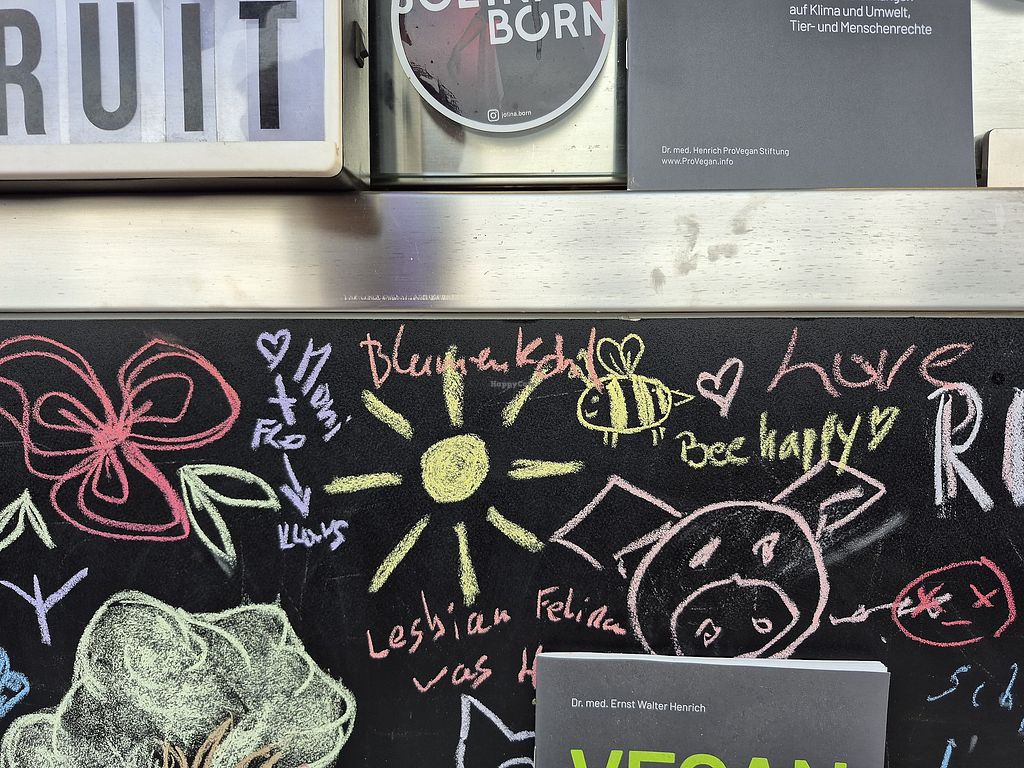 RUIT
BORN
jolina.born
auf Klima und Umwelt,
Tier- und Menschenrechte
Dr. med. Henrich ProVegan Stiftung
www.ProVegan.info
Blumenkohl
Love
Bee happy
+
Flo
Klaus
Lesbian Felina
was
Dr. med. Ernst Walter Henrich
VEGAN